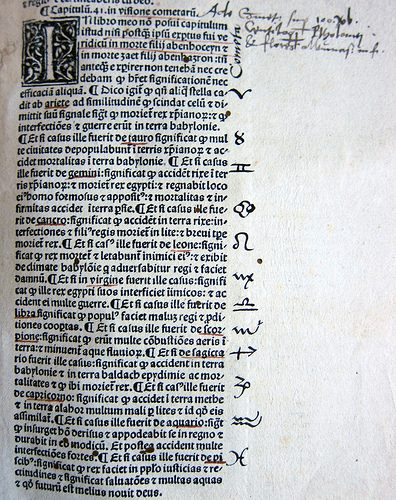 ¶ Capitulū. 41. in visione cometarū.
IN libro meo nō posui capitulum
istud nisi postq̄ʒ ipsū exptus fui ve
ridicū in morte filij abenhoceyn ⁊
in morte zaet filij abenhaʒron :tīi
antecq̄ʒ expirer non tenebā nec cre
debam ꝙ bʳet significationē nec
efficaciā aliquā. ¶ Dico igiꞇ̄ ꝙ q̄ñ aliq̄ stella ca
dit ab ariete ad similitudinē ꝙ scindat celū ⁊ di
mittit suū signale sigꞇ̄ ꝙ morieꞇ̄ rex xp̄ianoꝝ: ⁊ ꝙ
interfectiōes ⁊ guerre erūt in terra babylonie.
¶ Et si casus ille fuerit de tauro significat ꝙ mul
te ciuitates depopulabunꞇ̄ ī terris xp̄ianoꝝ ⁊ ac
cidet mortalitas ī terra babylonie. ¶ Et si casus
ille fuerit de gemini: significat ꝙ accidēt rixe ī ter
ris xp̄ianoꝝ: ⁊ morieꞇ̄ rex egypti: ⁊ regnabit loco
ei⁹ homo formosus ⁊ apposiꞇ⁹: ⁊ mortalitas ⁊ in
firmitas accidet ī terra p̄sie. ¶ Et si casus ille fue-
rit de cancro: significat ꝙ accidēt in terra rixe: in-
terfectiones ⁊ fili⁹ regis morieꞇ̄ in lite: ⁊ breui tꝑe
morieꞇ̄ rex. ¶ Et si cas⁹ ille fuerit de leone: signi-
ficat ꝙ rex morieꞇ̄ ⁊ letabunꞇ̄ inimici ei⁹: ⁊ exibit
de climate babylōie ꝗ aduersabitur regi ⁊ faciet
damnū. ¶ Et si in virgine fuerit ille casus: signifi
cat ꝙ ille rex egypti suos interficiet īimicos: ⁊ ac
cident ei multe guerre. ¶ Et si ille casus fuerit de
libra significat ꝙ populꝰ faciet maluʒ regi ⁊ ꝑdi-
tiones cooptas. ¶ Et si casus ille fuerit de scor-
pione: significat ꝙ erūt multe cōbustiōes aeris ī
terra: ⁊ minuenꞇ̄ aque fluuioꝝ. ¶ Et si de sagicta
rio fuerit ille casus: significat ꝙ accident in terra
babylonie ⁊ in terra baldach epydimie ac mor-
talitates ⁊ ꝙ ibi morieꞇ̄ rex. ¶ Et si cas⁹ ille fuerit
de capricorno: significat ꝙ accidet ī terra methe
⁊ in terra alabor multum mali ꝑ lites ⁊ id ꝙd eis
assimilaꞇ̄. ¶ Et si casus ille fuerit de aquario: sigꞇ̄
ꝙ insurget hō deriuus ⁊ appodeabit se in regno ⁊
durabit in eo modicū. Et postea accident multe
interfectiōes fortes. ¶ Et si casus ille fuerit de pi
scib⁹: significat ꝙ rex faciet in pp̄so iusticias ⁊ re-
ctitudines ⁊ significat saluatōes ⁊ multas aquas
⁊ ꝙd futurū est melius nouit deus.
Cometa
♈
♉
♊
♋
♌
♍
♎
♏
♐
♑
♒
♓